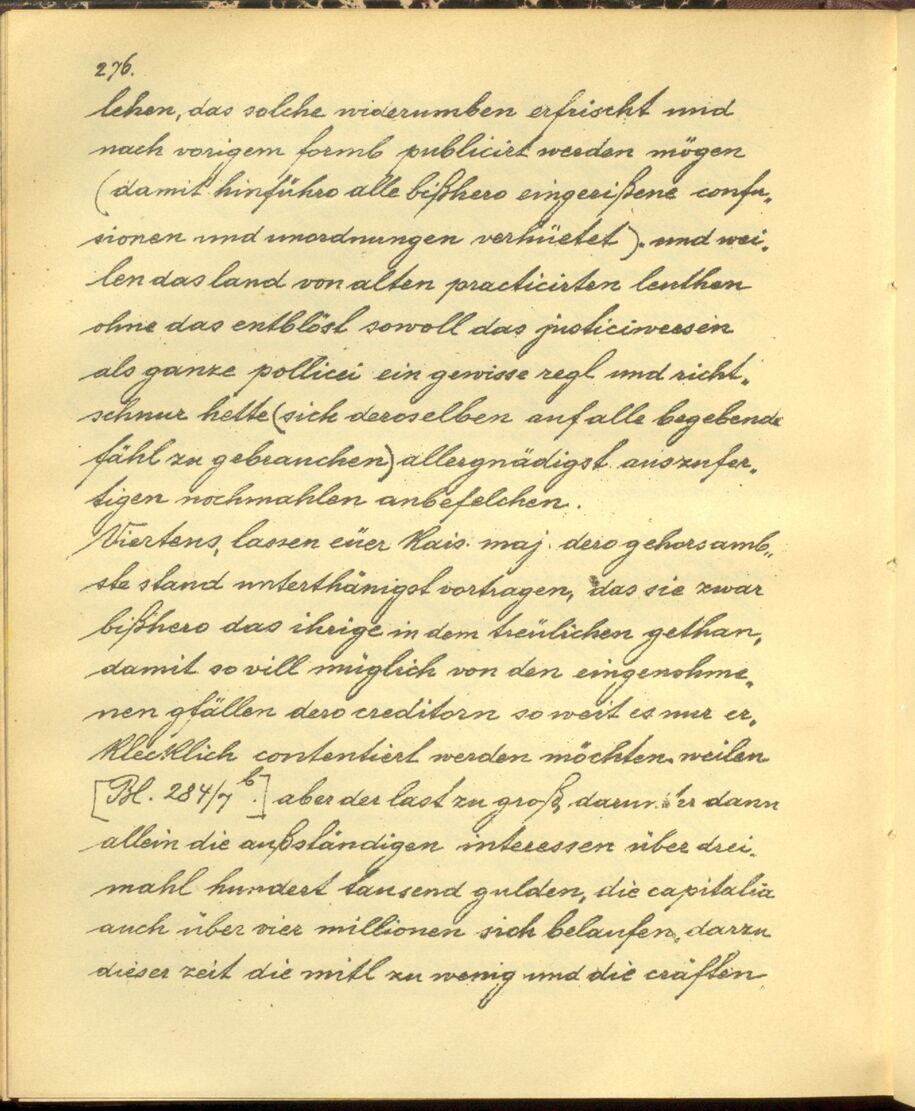 276.
lehen, das solche widerumben erfrischt und
nach vorigem formb publicirt werden mögen
(damit hinführo alle bißhero eingerißene confu„
sionen und unordnungen verhüetet). und wei„
len das land von alten practicirten leuthen
ohne das entblöst sowoll das justiciweesen
als ganze pollicei ein gewisse regl und richt„
schnur hette (sich deroselben auf alle begebende
fähl zu gebrauchen) allergnädigst auszufer„
tigen nochmahlen anbefelchen.
Viertens, lassen eüer Kais. maj. dero gehorsamb„
ste stand unterthänigst vortragen, das sie zwar
bißhero das ihrige in dem treülichen gethan,
damit so vill müglich von den eingenohme„
nen gfällen dero creditorn so weit es nur er„
klecklich contentiert werden möchten. weilen
[Bl. 284/7 b.] aber der last zu groß, dann
allein die außständigen interessen über drei„
mahl hundert tausend gulden, die capitalia
auch über vier millionen sich belaufen, darzu
dieser zeit die mitl zu wenig und die cräften